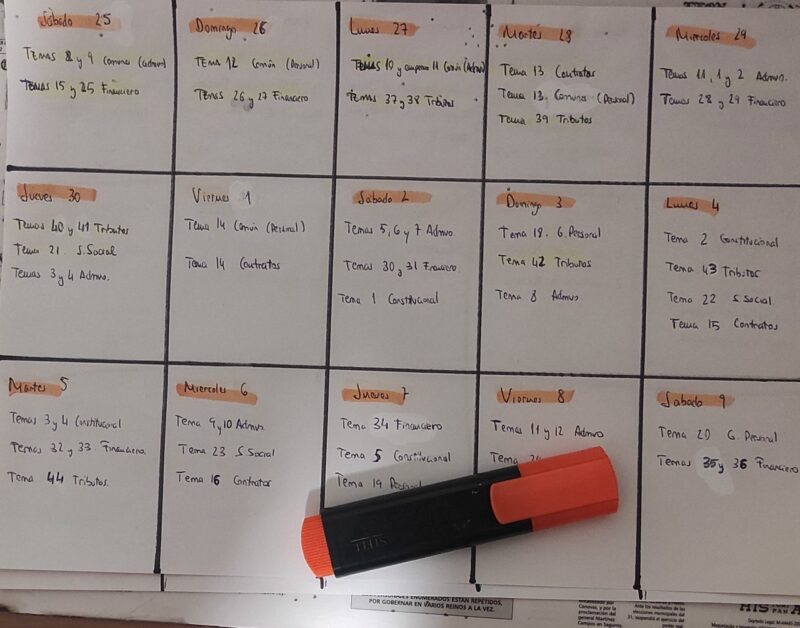 Sábado 25
Temas 8 y 9 Comunes (admvo)
Temas 15 y 25 Financiero
Domingo 26
Tema 12 Común (Personal)
Temas 26 y 27 Financiero
Lunes 27
Temas 10 y 11 Común (Admvo)
Temas 37 y 38 Tributos
Martes 28
Tema 13 Contratos
Tema 13 Comunes (Personal)
Tema 39 Tributos
Miercoles 29
Temas 11, 1 y 2 Admvo.
Temas 28 y 29 Financiero
Jueves 30
Temas 40 y 41 Tributos
Tema 21 S. Social
Temas 3 y 4 Admvo.
Viernes 1
Tema 14 Común (Personal)
Tema 14 Contratos
Sábado 2
Temas 5, 6 y 7 Admvo.
Temas 30 y 31 Financiero
Tema 1 Constitucional
Domingo 3
Tema 18 G. Personal
Tema 42 Tributos
Tema 8 Admvo
Lunes 4
Tema 2 Constitucional
Tema 43 Tributos
Tema 22 S. Social
Tema 15 Contratos
Martes 5
Temas 3 y 4 Constitucional
Temas 32 y 33 Financiero
Tema 44 Tributos.
Miercoles 6
Tema 9 y 10 Admvo.
Tema 23 S. Social
Tema 16 Contratos
Jueves 7
Tema 34 Financiero
Tema 5 Constitucional
Tema 19 Personal
Viernes 8
Temas 11 y 12 Admvo
Tema
Sabado 9
Tema 20 G. Personal
Temas 35 y 36 Financiero
ENUMERADOS ESTÁN REPETIDOS,
POR GOBERNAR EN VARIOS REINOS A LA VEZ.